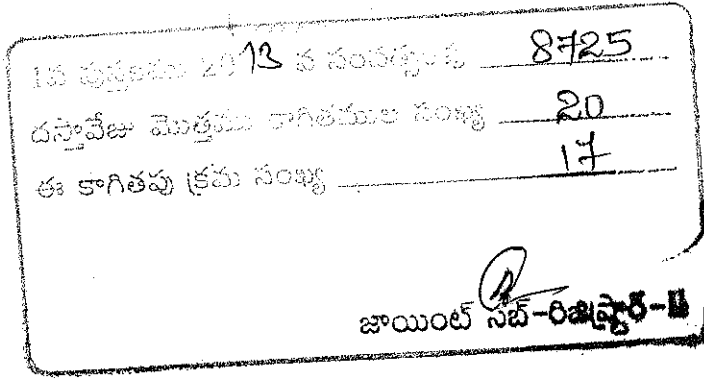 1వ పుస్తకము 2013 వ సంవత్సరపు 8725
దస్తావేజు మొత్తము కాగితముల సంఖ్య 20
ఈ కాగితపు క్రమ సంఖ్య 17
జాయింట్ సబ్-రిజిస్ట్రార్-II